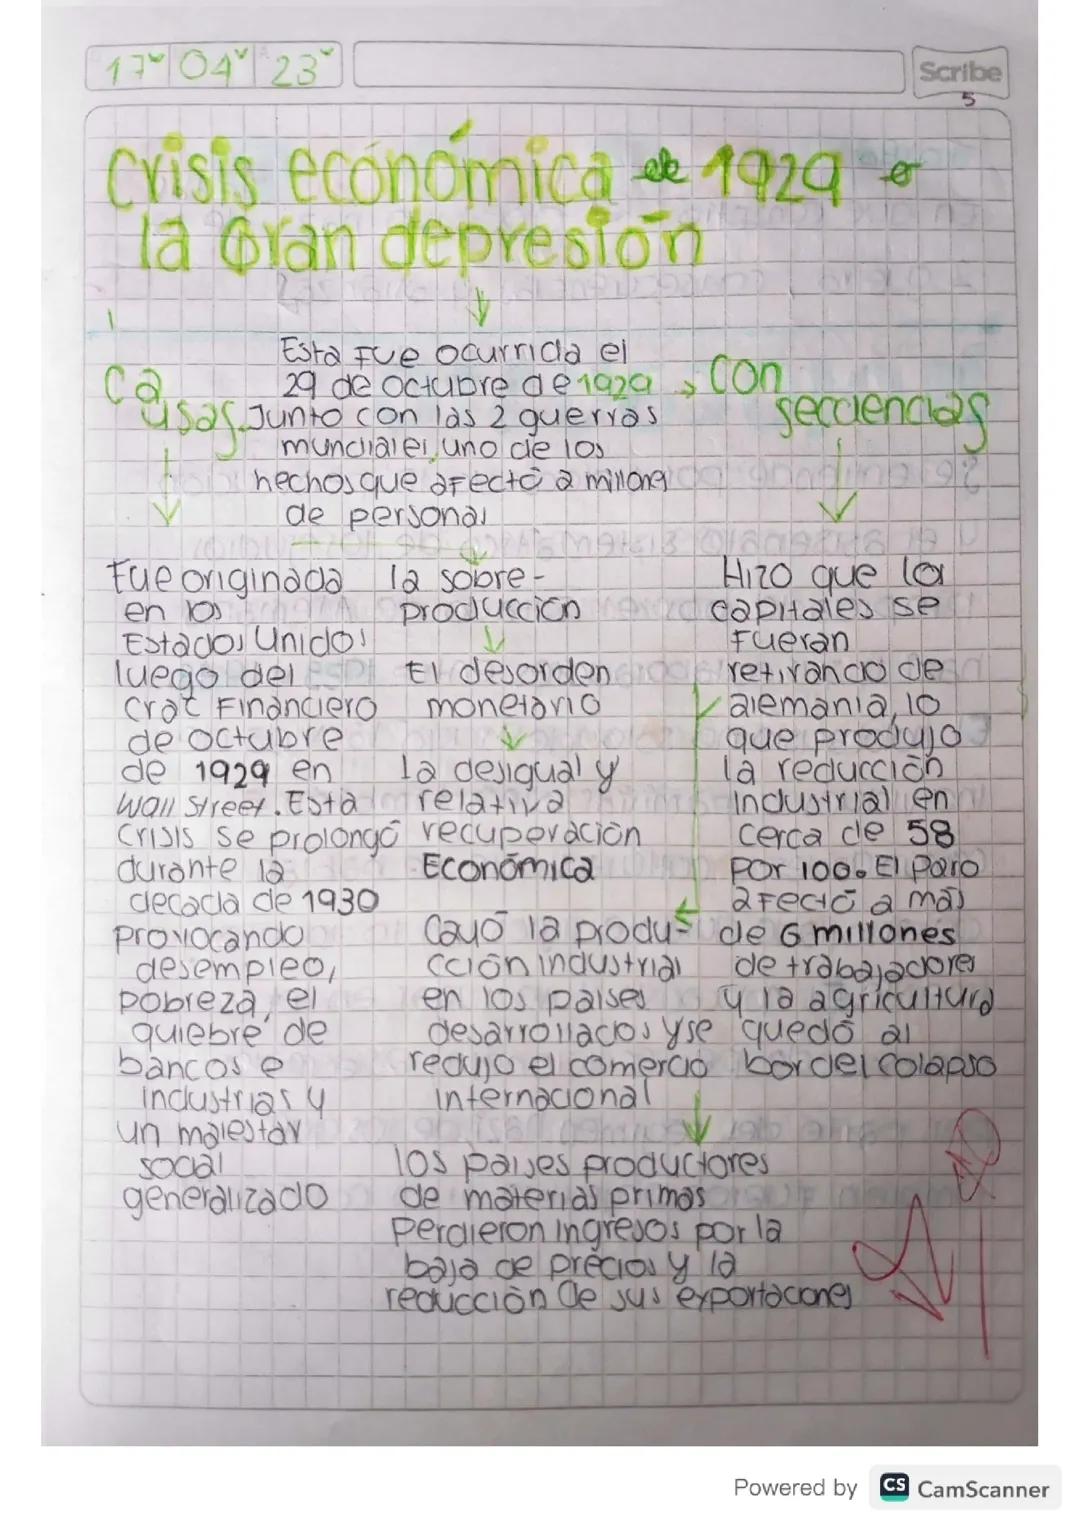 17 04 23
Scribe
5
Crisis económica de 1929 o
la Gran depresión
Esta fue ocurrida el
29 de octubre de 1929
Junto con las 2 guerras
mundiales, uno de los
hechos que afectó a millones
de personas
Causas
Fue originada
en los
Estados Unidos
luego del
crat Financiero
de octubre
de 1929 en
Wall Street. Esta
crisis se prolongó
durante la
decada de 1930
provocando
desempleo,
pobreza, el
quiebre de
bancos e
industrias y
un malestar
social
generalizado
la sobre-
producción
El desorden
monetario
la desigual y
relativa
recuperación
Económica
Cayó la produ-
cción industrial
en los paises
desarrollados y se
redujo el comercio
internacional
los paises productores
de materias primas
Perdieron ingresos por la
baja de precios y la
reducción de sus exportaciones
Con
secciencias
Hizo que los
capitales se
fueran
retirando de
alemania, lo
que produjo
la reducción
industrial en
cerca de 58
por 100. El paro
afectó a más
de 6 millones
de trabajadores
y la agricultura
quedó al
bor del colapso
Powered by CS CamScanner